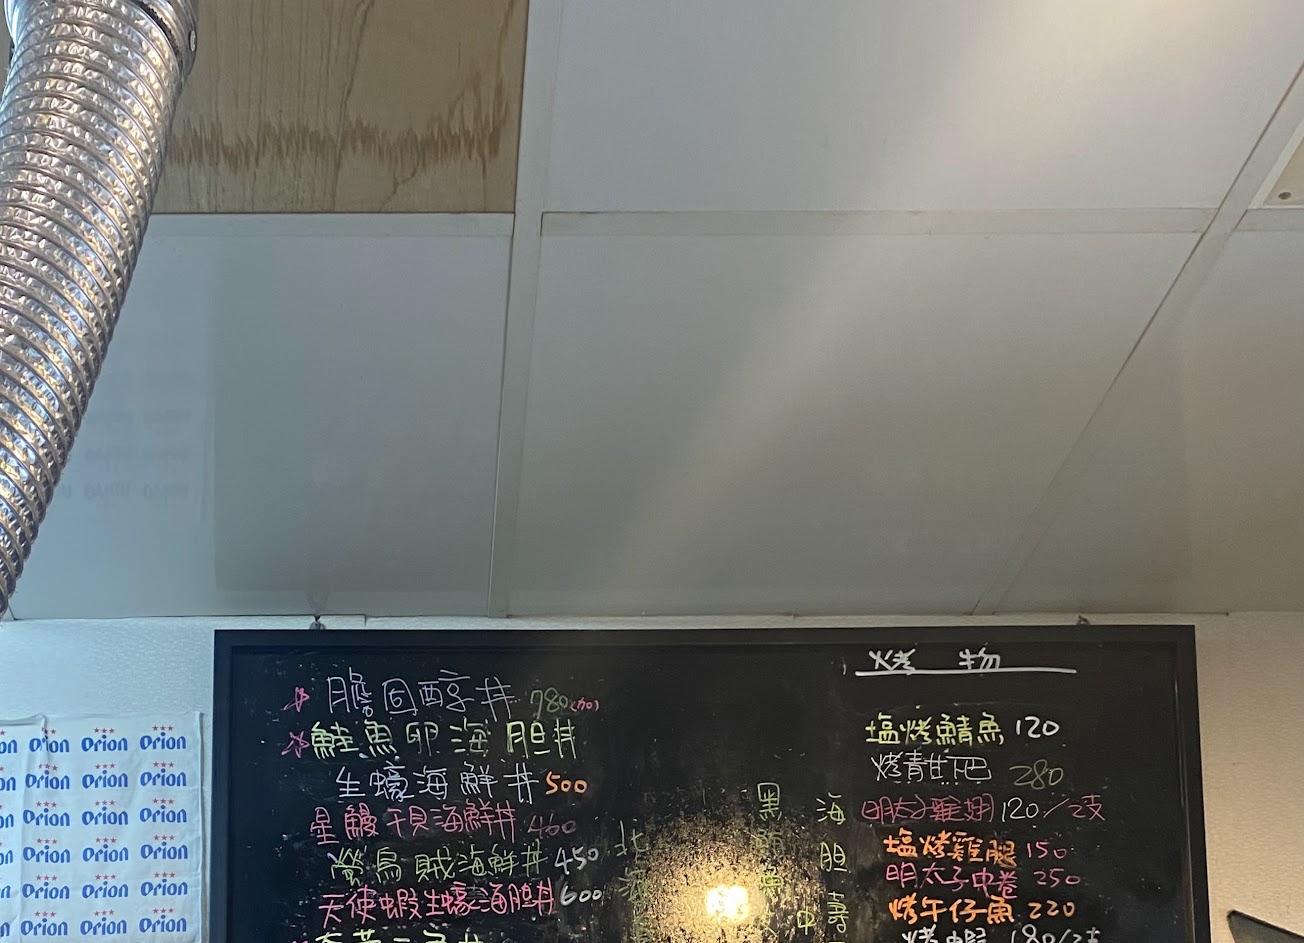 膽固醇丼 780(加)
鮭魚卵海胆丼
生蠔海鮮丼 500
星鰻干貝海鮮丼 460
螢烏賊海鮮丼 450
天使蝦生蠔海胆丼 600
北
海
黑
鮪
魚
海
胆
壽
中
烤物
塩烤鯖魚 120
烤青甘下巴 280
明太子雞翅 120/2支
塩烤雞腿 150
明太子中卷 250
烤午仔魚 220
烤蝦 180/2支
Orion Orion Orion
Orion Orion Orion
Orion Orion Orion
Orion Orion Orion
Orion Orion Orion
Orion Orion Orion